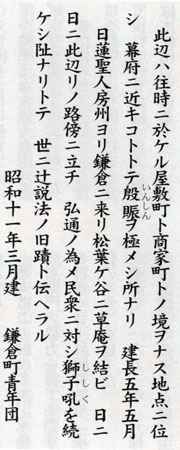 此辺ハ往時ニ於ケル屋敷町ト商家町トノ境ヲナス地点ニ位
シ　幕府ニ近キコトトテ殷賑ヲ極メシ所ナリ　建長五年五月
いんしん
日蓮聖人房州ヨリ鎌倉ニ来リ松葉ケ谷ニ草庵ヲ結ビ　日ニ
日ニ此辺リノ路傍ニ立チ　弘通ノ為メ民衆ニ対シ獅子吼ヲ続
ししく
ケシ阯ナリトテ　世ニ辻説法ノ旧蹟ト伝ヘラル
昭和十一年三月建　鎌倉町青年団